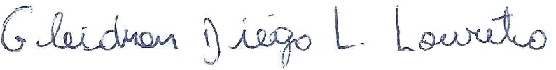 Gleidson Diego L. Loureiro